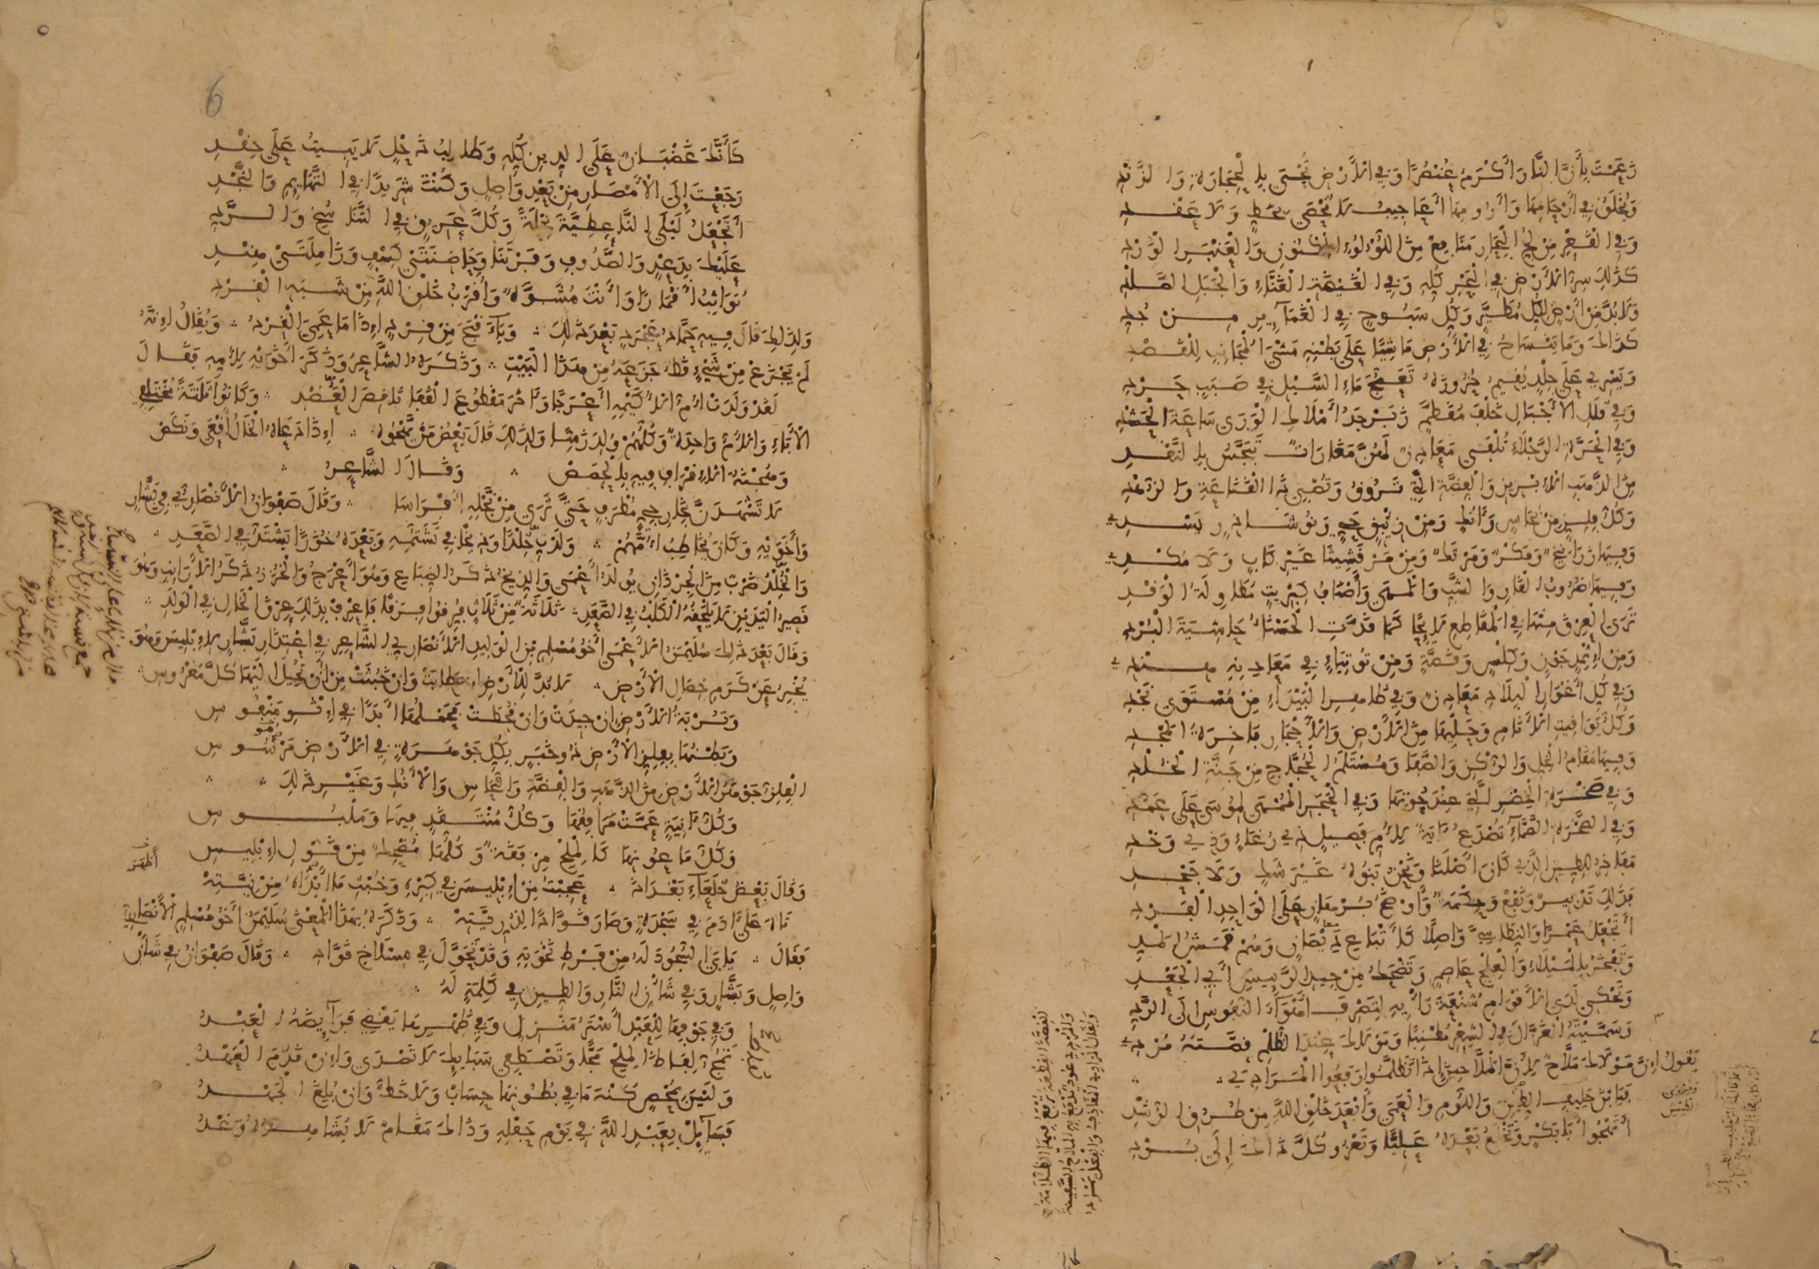 زَعَمْتَ بِأَنَّ النَّارَ أَكْرَمُ عُنْصُرًا وَفِي الْأَرْضِ تُحْيَى بِالْحِجَارَةِ وَالزَّنْدِ
وَيُخْلَقُ فِي أَرْحَامِهَا وَأُرُومِهَا أَعَاجِيبُ لَا تُحْصَى بِخَطٍّ وَلَا عَقْدِ
وَفِي الْقَعْرِ مِنْ لُجِّ الْبِحَارِ مَنَافِعٌ مِنَ اللُّؤْلُؤِ الْمَكْنُونِ وَالْعَنْبَرِ الْوَرْدِ
كَذَلِكَ سِرُّ الْأَرْضِ فِي الْبَحْرِ كُلِّهِ وَفِي الْغَيْضَةِ الْغَنَّاءِ وَالْجَبَلِ الصَّلْدِ
وَلَا بُدَّ مِنْ أَرْضٍ لِكُلِّ مُطَيَّرٍ وَكُلِّ سَبُوحٍ فِي الْغَمَائِرِ مِنْ جُدِّ
كَذَاكَ وَمَا يَنْسَاحُ فِي الْأَرْضِ مَاشِيًا عَلَى بَطْنِهِ مَشْيَ الْمُجَانِبِ لِلْقَصْدِ
وَيَسْرِي عَلَى جِلْدٍ يُقِيمُ حُزُوزَهُ تَعَمُّجَ مَاءِ السَّيْلِ فِي صَبَبٍ حَرْدِ
وَفِي قُلَلِ الْأَجْبَالِ خَلْفَ مُقَطَّمٍ زَبَرْجَدُ أَمْلَاكِ الْوَرَى سَاعَةَ الْحَشْدِ
وَفِي الْحَرَّةِ الرَّجْلَاءِ تُلْقَى مَعَادِنٌ لَهُنَّ مَغَارَاتٌ تَبَجَّسُ بِالنَّقْدِ
مِنَ الذَّهَبِ الْإِبْرِيزِ وَالْفِضَّةِ الَّتِي تَرُوقُ وَتُصْبِي ذَا الْقَنَاعَةِ وَالزُّهْدِ
وَكُلُّ فِلِزٍّ مِنْ نُحَاسٍ وَآنُكٍ وَمِنْ زِئْبَقٍ حَيٍّ وَنُوشَاذِرٍ يُسْدِي
وَفِيهَا زَرَانِيخٌ وَمَكْرٌ وَمَرْتَكٌ وَمِنْ مَرْقَشِيثَا غَيْرِ كَابٍ وَلَا مُكْدِي
وَفِيهَا ضُرُوبُ الْقَارِ وَالشَّبِّ وَالْمَهَى وَأَصْنَافُ كِبْرِيتٍ مُطَاوِلَةُ الْوَقْدِ
تَرَى الْعِرْقَ مِنْهَا فِي الْمَقَاطِعِ لَائِحًا كَمَا قَدَّتِ الْحَسْنَاءُ حَاشِيَةَ الْبُرْدِ
وَمِنْ إِثْمِدٍ جَوْنٍ وَكِلْسٍ وَفِضَّةٍ وَمِنْ تُوتِيَاءٍ فِي مَعَادِنِهِ هِنْدِي
وَفِي كُلِّ أَغْوَارِ الْبِلَادِ مَعَادِنٌ وَفِي ظَاهِرِ الْبَيْدَاءِ مِنْ مُسْتَوَى نَجْدِ
وَكُلُّ يَوَاقِيتِ الْأَنَامِ وَحَلْيِهَا مِنَ الْأَرْضِ وَالْأَحْجَارِ فَاخِرَةُ الْمَجْدِ
وَفِيهَا مَقَامُ الْحِلِّ وَالرُّكْنُ وَالصَّفَا وَمُسْتَلَمُ الْحُجَّاجِ مِنْ جَنَّةِ الْخُلْدِ
وَفِي صَخْرَةِ الْخِضْرِ الَّتِي عِنْدَ حُوتِهَا وَفِي الْحَجَرِ الْمُمْهَى لِمُوسَى عَلَى عَمْدِ
وَفِي الصَّخْرَةِ الصَّمَّاءِ تُصْدَعُ آيَةً لِأُمِّ فَصِيلٍ ذِي رُغَاءٍ وَذِي وَخْدِ
مَفَاخِرُ لِلطِّينِ الَّذِي كَانَ أَصْلَنَا وَنَحْنُ بَنُوهُ غَيْرَ شَكٍّ وَلَا جَحْدِ
فَذَلِكَ تَدْبِيرٌ وَنَفْعٌ وَحِكْمَةٌ وَأَوْضَحُ بُرْهَانٍ عَلَى الْوَاحِدِ الْفَرْدِ
أَتَجْعَلُ عَمْرًا وَالنِّطَاسِيَّ وَاصِلًا كَأَتْبَاعِ دَيْصَانٍ وَهُمْ قُمُشُ الْمَدِّ
وَتَفْخَرُ بِالْمَيْلَاءِ وَالْعِلْجِ عَاصِمٍ وَتَضْحَكُ مِنْ جِيدِ الرَّئِيسِ أَبِي الْجَعْدِ
وَتَحْكِي لَدَى الْأَقْوَامِ شُنْعَةَ رَأْيِهِ لِتَصْرِفَ أَهْوَاءَ النُّفُوسِ إِلَى الرَّدِّ
وَسَمَّيْتَهُ الْغَزَّالَ فِي الشِّعْرِ مُطْنِبًا وَمَوْلَاكَ عِنْدَ الظُّلْمِ قِصَّتُهُ مُرْدِي
يَقُولُ إِنَّ مَوْلَاكَ مَلَّاحٌ لِأَنَّ الْمَلَّاحِينَ إِذَا تَظَلَّمُوا رَفَعُوا الْمَرَادِيَ
فَيَا ابْنَ حَلِيفِ الطِّينِ وَاللُّؤْمِ وَالْعَمَى وَأَبْعَدَ خَلْقِ اللَّهِ مِنْ طُرُقِ الرُّشْدِ
أَتَهْجُو أَبَا بَكْرٍ وَتَخْلَعُ بَعْدَهُ عَلِيًّا وَتَعْزُو كُلَّ ذَاكَ إِلَى بُرْدِ
6
كَأَنَّكَ غَضْبَانٌ عَلَى الدِّينِ كُلِّهِ وَطَالِبُ ذَحْلٍ لَا يَبِيتُ عَلَى حِقْدِ
رَجَعْتَ إِلَى الْأَمْصَارِ مِنْ بَعْدِ وَاصِلٍ وَكُنْتَ شَرِيدًا فِي التَّهَائِمِ وَالنُّجْدِ
أَتَجْعَلُ لَيْلَى النَّاعِطِيَّةَ نِحْلَةً وَكُلَّ عَرِيقٍ فِي التَّنَاسُخِ وَالرَّدِّ
عَلَيْكَ بِدَعْدٍ وَالصَّدُوفِ وَفَرْتَنَا وَحَاضِنَتَيْ كِسْفٍ وَزَامِلَتَيْ هِنْدِ
تُوَاثِبُ أَقْمَارًا وَأَنْتَ مُشَوَّهٌ وَأَقْرَبُ خَلْقِ اللَّهِ مِنْ شَبَهِ الْقِرْدِ
وَلِذَلِكَ قَالَ فِيهِ حَمَّادُ عَجْرَدٍ بَعْدَ ذَلِكَ وَيَا أَقْبَحَ مِنْ قِرْدٍ إِذَا مَا عَمِيَ الْقِرْدُ وَيُقَالُ إِنَّهُ
لَمْ يَجْزَعْ مِنْ شَيْءٍ قَطُّ جَزَعَهُ مِنْ هَذَا الْبَيْتِ وَذَكَرَهُ الشَّاعِرُ وَذَكَرَ أَخَوَيْهِ لِأُمِّهِ فَقَالَ
لَقَدْ وَلَدَتْ أُمُّ الْأُكَيْمِهِ أَعْرَجًا وَآخَرَ مَقْطُوعَ الْقَفَا نَاقِصَ الْعَضُدْ وَكَانُوا ثَلَاثَةً مُخْتَلِفِي
الْآبَاءِ وَالْأُمُّ وَاحِدَةٌ وَكُلُّهُمْ وُلِدَ زَمِنًا وَلِذَلِكَ قَالَ بَعْضُ مَنْ يَهْجُوهُ إِذَا دَعَاهُ الْخَالُ أَقْعَى وَنَكَصْ
وَهُجْنَةُ الْإِقْرَافِ فِيهِ بِالْحِصَصْ وَقَالَ الشَّاعِرُ
لَا تَشْهَدَنَّ بِخَارِجِيٍّ مُطْرِفٍ حَتَّى تَرَى مِنْ نَجْلِهِ أَفْرَاسَا وَقَالَ صَفْوَانُ الْأَنْصَارِيُّ فِي بَشَّارٍ
وَأَخَوَيْهِ وَكَانَ يُخَاطِبُ أُمَّهُمْ وَلَدْتِ خُلْدًا وَذِيخًا فِي تَشَتُّمِهِ وَبَعْدَهُ خُزَزًا يَشْتَدُّ فِي الصَّعَدِ
وَالْخُلْدُ ضَرْبٌ مِنَ الْجِرْذَانِ يُولَدُ أَعْمَى وَالذِّيخُ ذَكَرُ الضِّبَاعِ وَهُوَ أَعْرَجُ وَالْخُزَزُ ذَكَرُ الْأَرَانِبِ وَهُوَ
قَصِيرُ الْيَدَيْنِ لَا يَلْحَقُهُ الْكَلْبُ فِي الصَّعَدِ ثَلَاثَةٌ مِنْ ثَلَاثٍ فُرِّقُوا فِرَقًا فَاعْرِفْ بِذَلِكَ عِرْقَ الْخَالِ فِي الْوَلَدِ
وَقَالَ بَعْدَ ذَلِكَ سُلَيْمَنُ الْأَعْمَى أَخُو مُسْلِمِ بْنِ الْوَلِيدِ الْأَنْصَارِيِّ الشَّاعِرِ فِي اعْتِذَارِ بَشَّارٍ لِإِبْلِيسَ وَهُوَ
يُخْبِرُ عَنْ كَرَمِ خِصَالِ الْأَرْضِ لَا بُدَّ لِلْأَرْضِ إِنْ طَابَتْ وَإِنْ خَبُثَتْ مِنْ أَنْ تُحِيلَ إِلَيْهَا كُلَّ مَغْرُوسِ
وَتُرْبَةُ الْأَرْضِ إِنْ جِيدَتْ وَإِنْ قُحِطَتْ فَحَمْلُهَا أَبَدًا فِي إِثْرِ مَنْفُوسِ
وَبَطْنُهَا بِفِلِزِّ الْأَرْضِ ذُو خَبَرٍ بِكُلِّ جَوْهَرَةٍ فِي الْأَرْضِ مَرْمُوسِ
الْفِلِزُّ جَوْهَرُ الْأَرْضِ مِنَ الذَّهَبِ وَالْفِضَّةِ وَالنُّحَاسِ وَالْآنُكِ وَغَيْرِ ذَلِكَ
وَكُلُّ آنِيَةٍ عَمَّتْ مَرَافِقُهَا وَكُلُّ مُنْتَقَدٍ فِيهَا وَمَلْبُوسِ
وَكُلُّ مَاعُونِهَا كَالْمِلْحِ مِرْفَقَةٌ وَكُلُّهَا مُضْحِكٌ مِنْ قَوْلِ إِبْلِيسِ
وَقَالَ بَعْضُ خُلَعَاءِ بَغْدَادَ عَجِبْتُ مِنْ إِبْلِيسَ فِي كِبْرِهِ وَخُبْثِ مَا أَبْدَاهُ مِنْ نِيَّتِهْ
أَظْهَرَ
تَاهَ عَلَى آدَمَ فِي سَجْدَةٍ وَصَارَ قَوَّادًا لِذُرِّيَّتِهْ وَذَكَرَهُ بِهَذَا الْمَعْنَى سُلَيْمَنُ أَخُو مُسْلِمٍ الْأَنْصَارِيُّ
فَقَالَ يَأْبَى السُّجُودَ لَهُ مِنْ فَرْطِ نَخْوَتِهِ وَقَدْ تَحَوَّلَ فِي مِسْلَاخِ قَوَّادِ وَقَالَ صَفْوَانُ فِي شَأْنِ
وَاصِلٍ وَبَشَّارٍ وَفِي شَأْنِ النَّارِ وَالطِّينِ فِي كَلِمَةٍ لَهُ
وَفِي جَوْفِهَا لِلْعَبْدِ أَسْتَرُ مَنْزِلٍ وَفِي ظَهْرِهَا يَقْضِي فَرَائِضَهُ الْعَبْدُ
تَمُجُّ لُفَاظَ الْمِلْحِ مَجًّا وَتَصْطَفِي سَبَائِكَ لَا تَصْدَى وَإِنْ قَدُمَ الْعَهْدُ
وَلَيْسَ بِمُحْصٍ كُنْهَ مَا فِي بُطُونِهَا حِسَابٌ وَلَا خَطٌّ وَإِنْ بُلِغَ الْجَهْدُ
فَسَائِلْ بِعَبْدِ اللَّهِ فِي يَوْمِ حَفْلِهِ وَذَاكَ مَقَامٌ لَا يُشَاهِدُهُ وَغْدُ